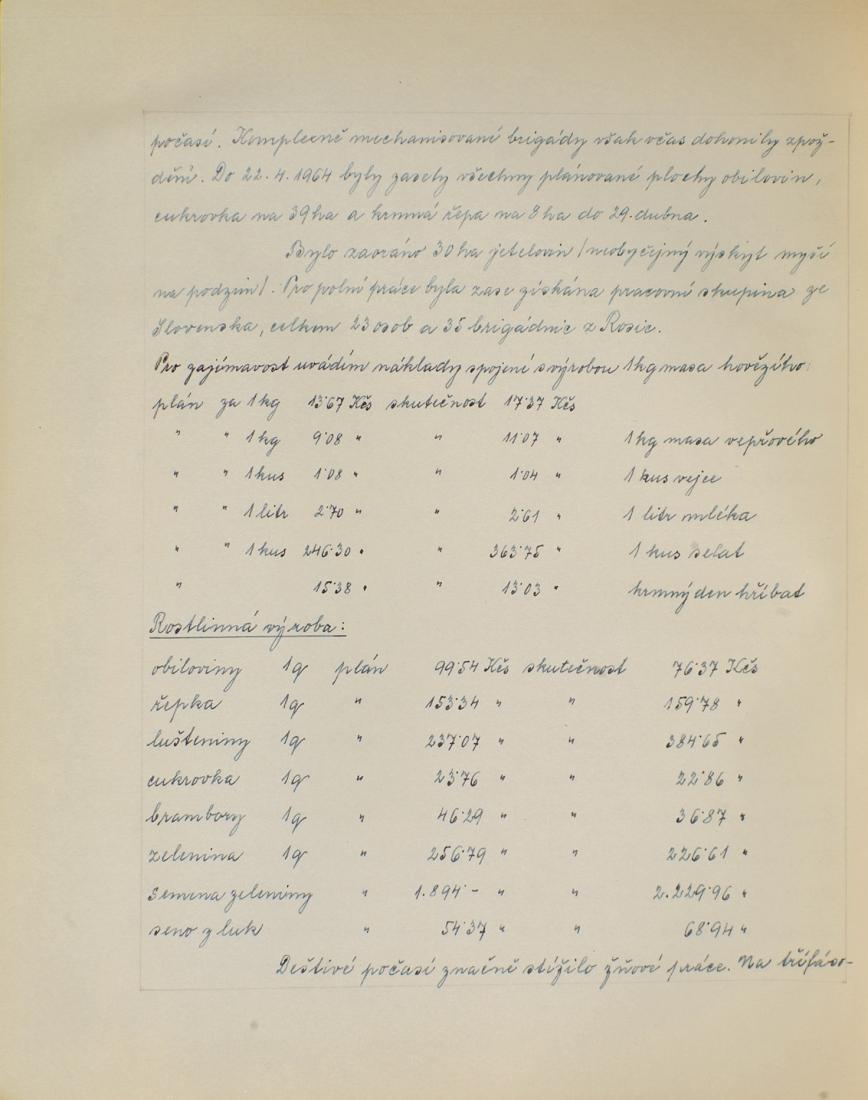 počasí. Komplexně mechanisované brigády však včas dohonily zpož-
dění. Do 22.4.1964 byly zasety všechny plánované plochy obilovin,
cukrovka na 39 ha a krmná řepa na 8 ha do 29. dubna.
Bylo zaoráno 30 ha jetelovin /neobyčejný výskyt myší
na podzim/. Pro polní práce byla zase získána pracovní skupina ze
Slovenska, celkem 23 osob a 35 brigádnic z Rosic.
Pro zajímavost uvádím náklady spojení s výrobou 1 kg masa hovězího:
plán za 1 kg 13·67 Kčs skutečnost 17·37 Kčs
" " 1 kg 9·08 " " 11·07 " 1 kg masa vepřového
" " 1 kus 1·08 " " 1·04 " 1 kus vejce
" " 1 litr 2·70 " " 2·61 " 1 litr mléka
" " 1 kus 246·30 " " 363·75 " 1 kus selat
" 15·38 " " 13·03 " krmný den hříbat
Rostlinná výroba:
obiloviny 1q plán 99·54 Kčs skutečnost 76·37 Kčs
řepka 1q " 153·34 " " 159·78 "
luštěniny 1q " 237·07 " " 384·65 "
cukrovka 1q " 23·76 " " 22·86 "
brambory 1q " 46·29 " " 36·87 "
zelenina 1q " 256·79 " " 226·61 "
semena zeleniny " 1.894·- " " 2.229·96 "
seno z luk " 54·37 " " 68·94 "
Deštivé počasí značně stížilo žňové práce. Na třífáso-